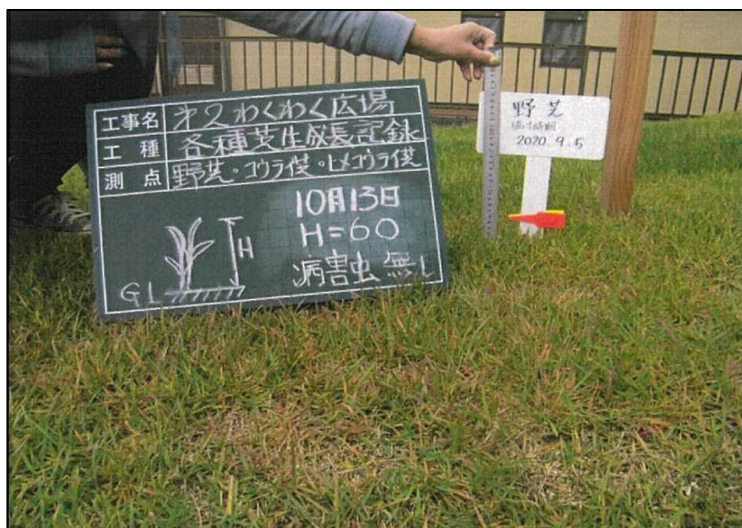 工事名 オ2わくわく広場
工種 各種芝生成長記録
測点 野芝・コウライ芝・ヒメコウライ芝
10月13日
H=60
病害虫 無し
H
GL
野芝
2020.9.5